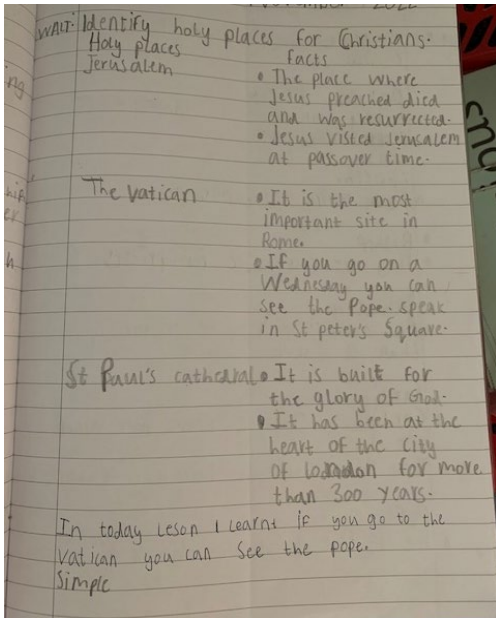 November 2022
WALT: Identify holy places for Christians.
Holy places facts
Jerusalem • The place where
Jesus preached died
and was resurrected.
• Jesus visted Jerusalem
at passover time.
The Vatican • It is the most
important site in
Rome.
• If you go on a
Wednesday you can
see the Pope. speak
in St peter's Square.
St Paul's cathedral • It is built for
the glory of God.
• It has been at the
heart of the city
of london for more
than 300 years.
In today Leson I Learnt if you go to the
Vatican you can see the pope.
Simple